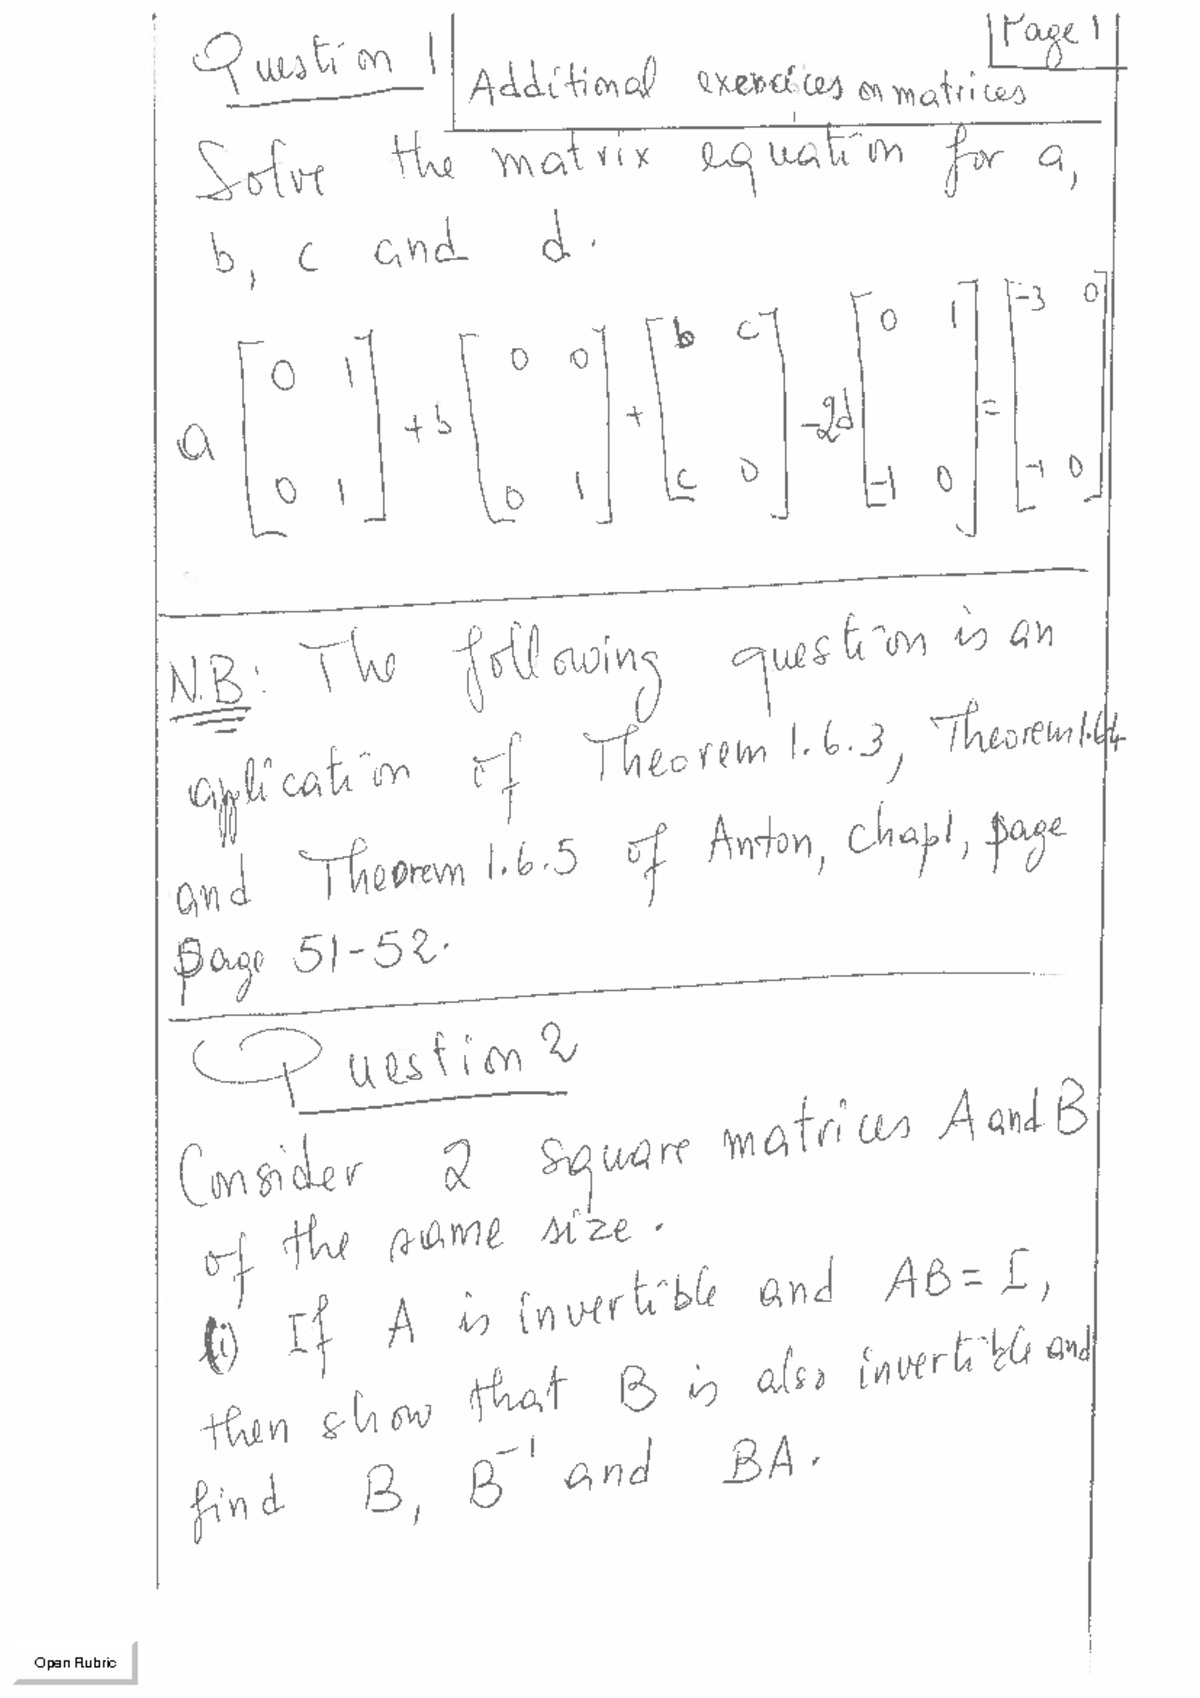 Page 1
Question 1
Additional exercices on matrices
Solve the matrix equation for a,
b, c and d.
a [0 1 0 1] + b [0 0 0 1] + [b c c 0] -2d [0 1 -1 0] = [-3 0 -1 0]
N.B: The following question is an
application of Theorem 1.6.3, Theorem 1.6.4
and Theorem 1.6.5 of Anton, chap1, page
page 51-52.
Question 2
Consider 2 square matrices A and B
of the same size.
(i) If A is invertible and AB = I,
then show that B is also invertible and
find B, B⁻¹ and BA.
Open Rubric